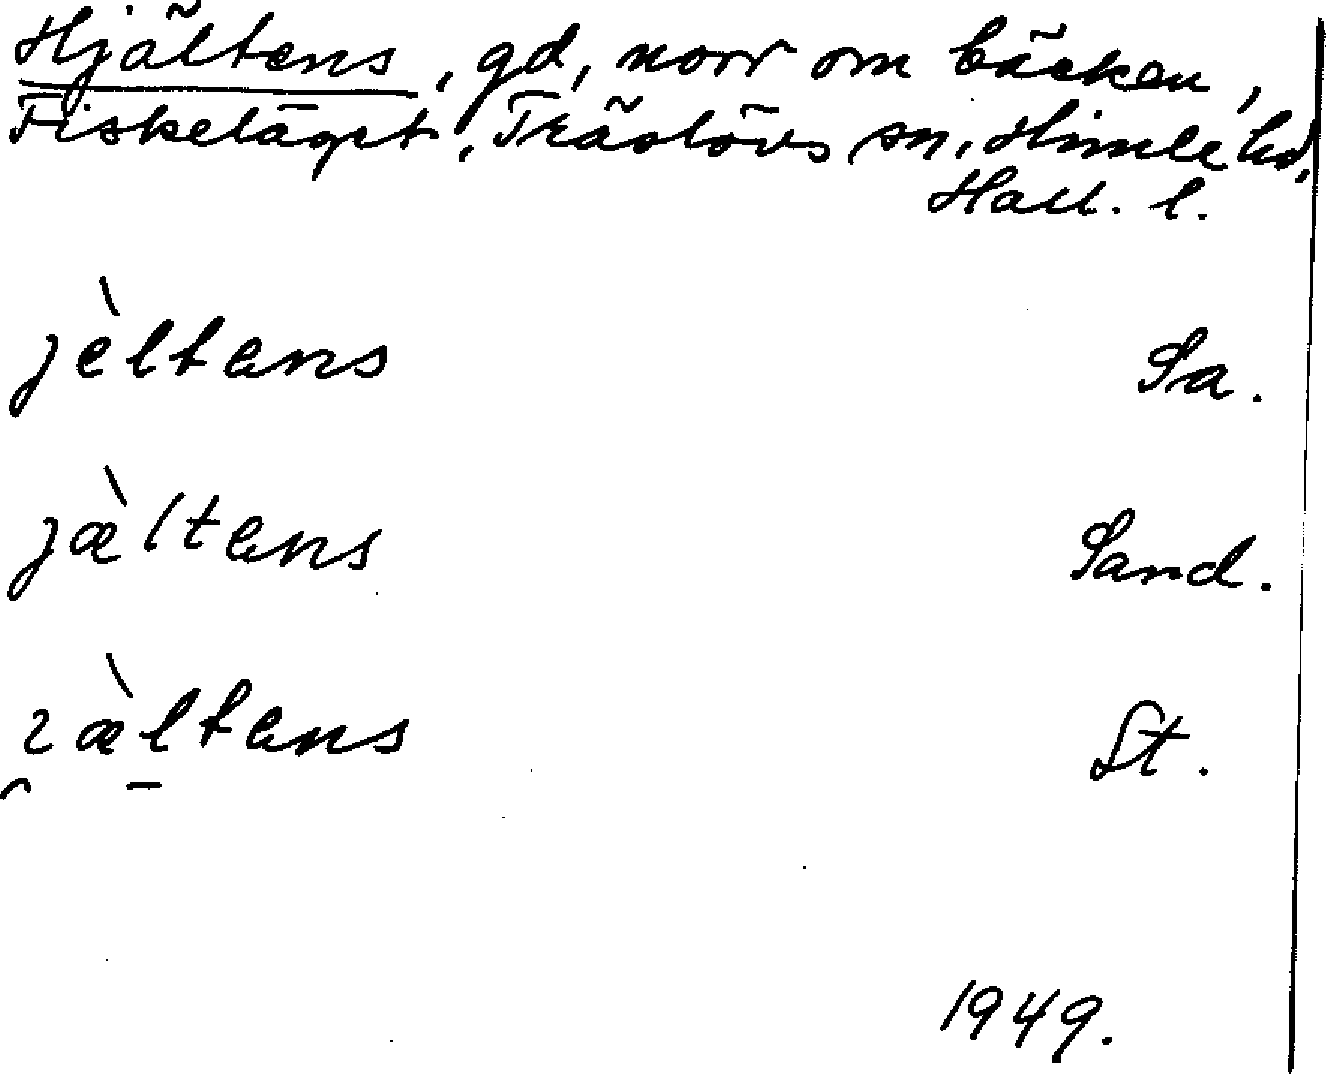 Hjältens, gd, norr om bäcken,
Fiskeläget, Träslövs sn, Himle hd,
Hall. l.
jèltens Sa.
jæ̀ltens Sand.
æ̀ltens St.
1949.